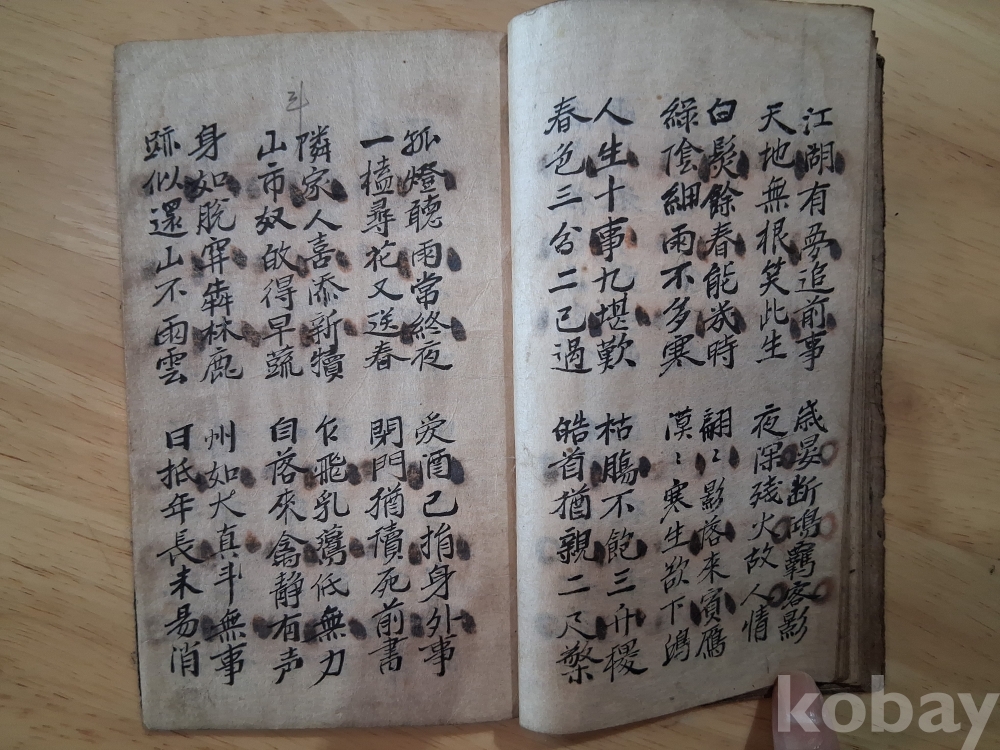 江湖有夢追前事
天地無根笑此生
白髮餘春能幾時
綠陰細雨不多寒
人生十事九堪歎
春色三分二已過
歲晏断鴻羇客影
夜深殘火故人情
翩〻影落來賓鴈
漠〻寒生欲下鴻
枯腸不飽三升稷
皓首猶親二尺檠
孤燈聽雨常終夜
一榼尋花又送春
隣家人喜添新犢
山市奴故得早蔬
身如脫穽犇林鹿
跡似還山不雨雲
愛酒已捐身外事
閉門猶續死前書
乍飛乳鷰低無力
自落來禽静有声
州如大真斗無事
日抵年長未易消
kobay